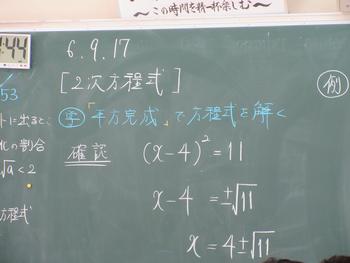 〜この時間を精一杯楽しむ〜
:44
6.9.17
[2次方程式]
例
/53
㋕「平方完成」で方程式を解く
トに出ると、
化の割合
√a<2
方程式
確認 (x-4)²=11
x-4 =±√11
x=4±√11